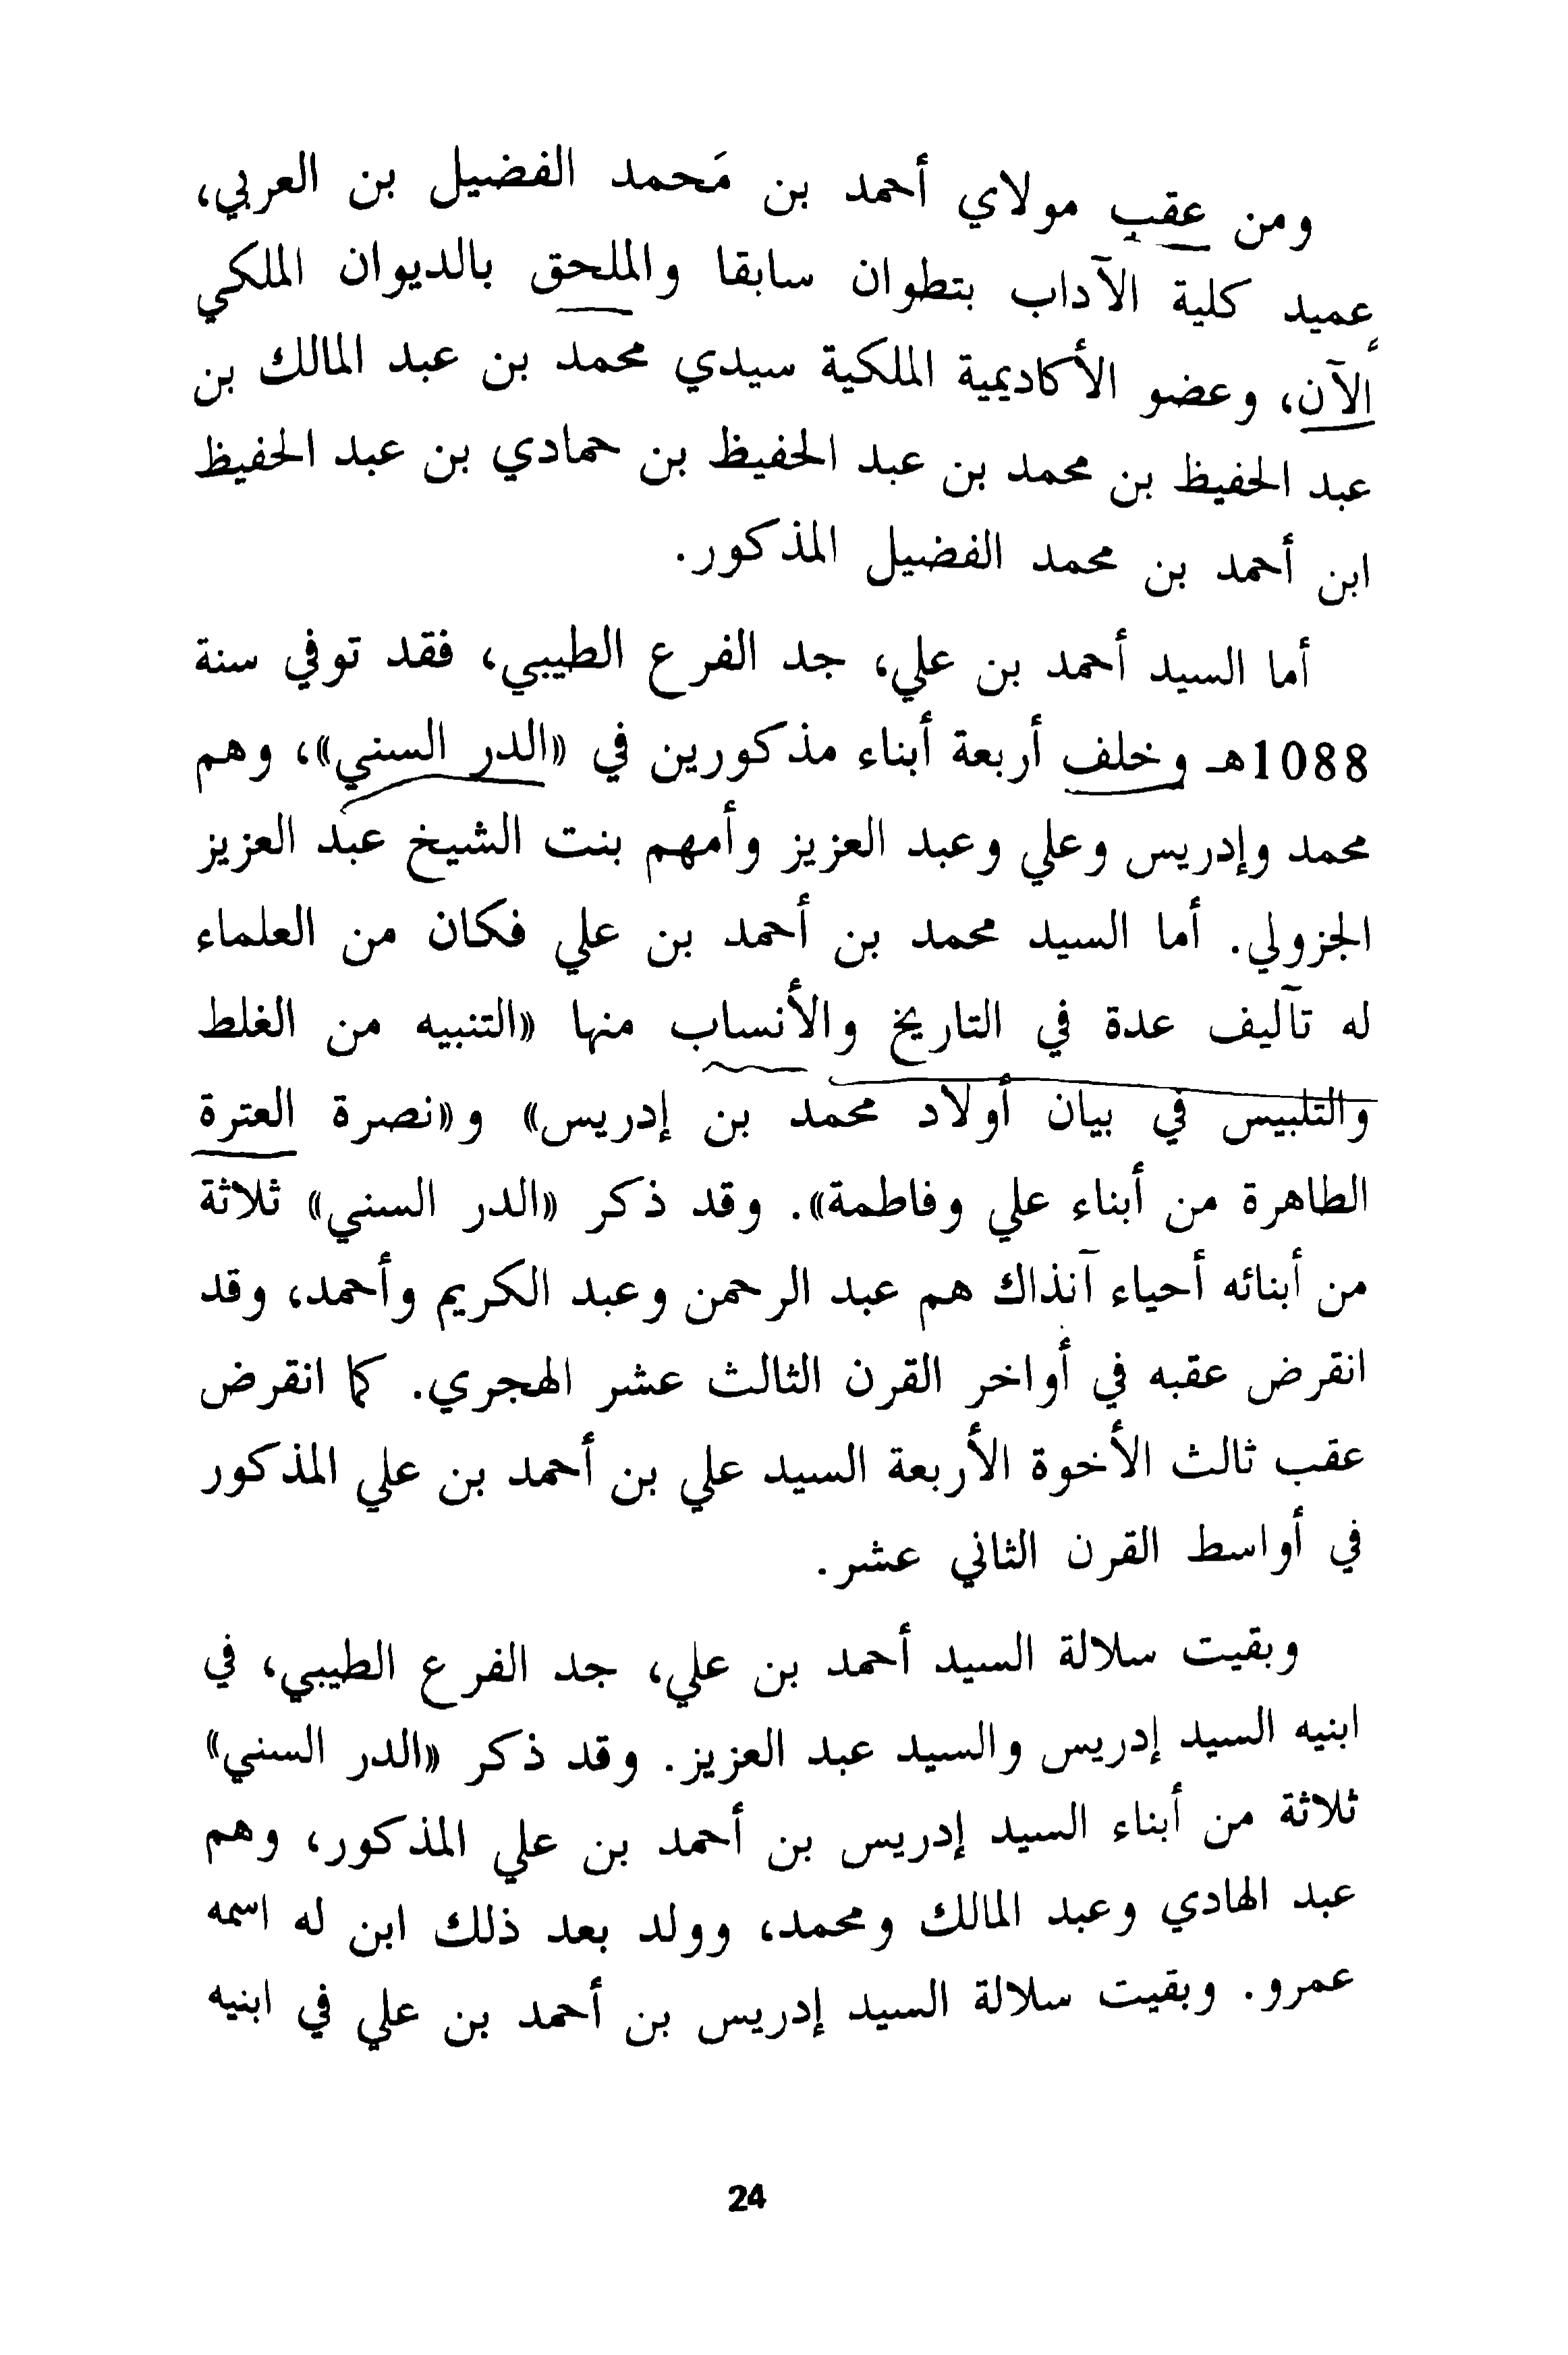 ومن عقب مولاي أحمد بن مَحمد الفضيل بن العربي،
عميد كلية الآداب بتطوان سابقا والملحق بالديوان الملكي
الآن، وعضو الأكاديمية الملكية سيدي محمد بن عبد المالك بن
عبد الحفيظ بن محمد بن عبد الحفيظ بن حمادي بن عبد الحفيظ
ابن أحمد بن محمد الفضيل المذكور.
أما السيد أحمد بن علي، جد الفرع الطيبي، فقد توفي سنة
1088هـ وخلف أربعة أبناء مذكورين في «الدر السني»، وهم
محمد وإدريس وعلي وعبد العزيز وأمهم بنت الشيخ عبد العزيز
الجزولي. أما السيد محمد بن أحمد بن علي فكان من العلماء
له تآليف عدة في التاريخ والأنساب منها «التنبيه من الغلط
والتلبيس في بيان أولاد محمد بن إدريس» و«نصرة العترة
الطاهرة من أبناء علي وفاطمة». وقد ذكر «الدر السني» ثلاثة
من أبنائه أحياء آنذاك هم عبد الرحمن وعبد الكريم وأحمد، وقد
انقرض عقبه في أواخر القرن الثالث عشر الهجري. كما انقرض
عقب ثالث الأخوة الأربعة السيد علي بن أحمد بن علي المذكور
في أواسط القرن الثاني عشر.
وبقيت سلالة السيد أحمد بن علي، جد الفرع الطيبي، في
ابنيه السيد إدريس والسيد عبد العزيز. وقد ذكر «الدر السني»
ثلاثة من أبناء السيد إدريس بن أحمد بن علي المذكور، وهم
عبد الهادي وعبد المالك ومحمد، وولد بعد ذلك ابن له اسمه
عمرو. وبقيت سلالة السيد إدريس بن أحمد بن علي في ابنيه
24